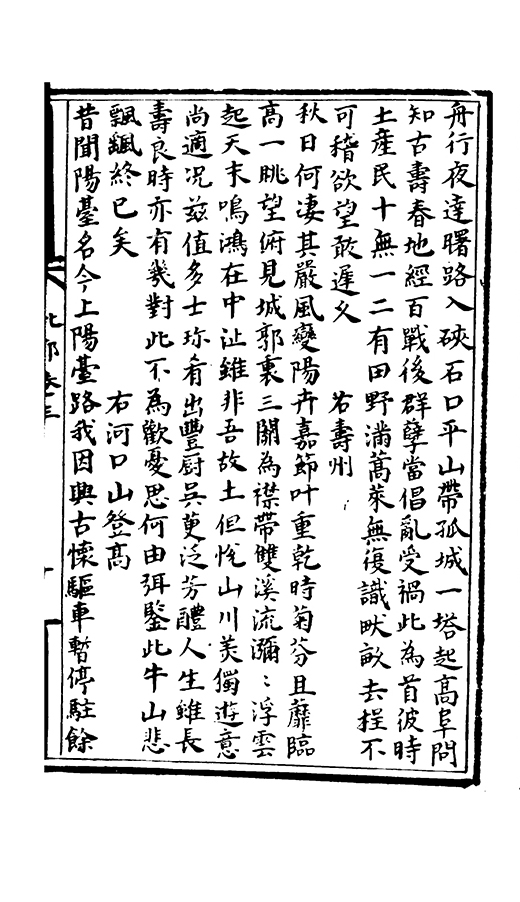 舟行夜達曙路入硤石口平山帶孤城一塔起高阜問
知古壽春地經百戰後群孽當倡亂受禍此為首彼時
土產民十無一二有田野滿蒿萊無復識畎畝去程不
可稽欲望敢遲久　　右壽州
秋日何淒其嚴風變陽卉嘉節叶重乾時菊芬且靡臨
高一眺望俯見城郭裏三關為襟帶雙溪流瀰〻浮雲
起天末鳴鴻在中沚雖非吾故土但恱山川美獨遊意
尚適况兹值多士珎肴出豐厨吳萸泛芳醴人生雖長
壽良時亦有幾對此不為歡憂思何由弭鑒此牛山悲
飄飄終已矣　　右河口山登高
昔聞陽臺名今上陽臺路我因興古懷驅車暫停駐餘
北郭卷三